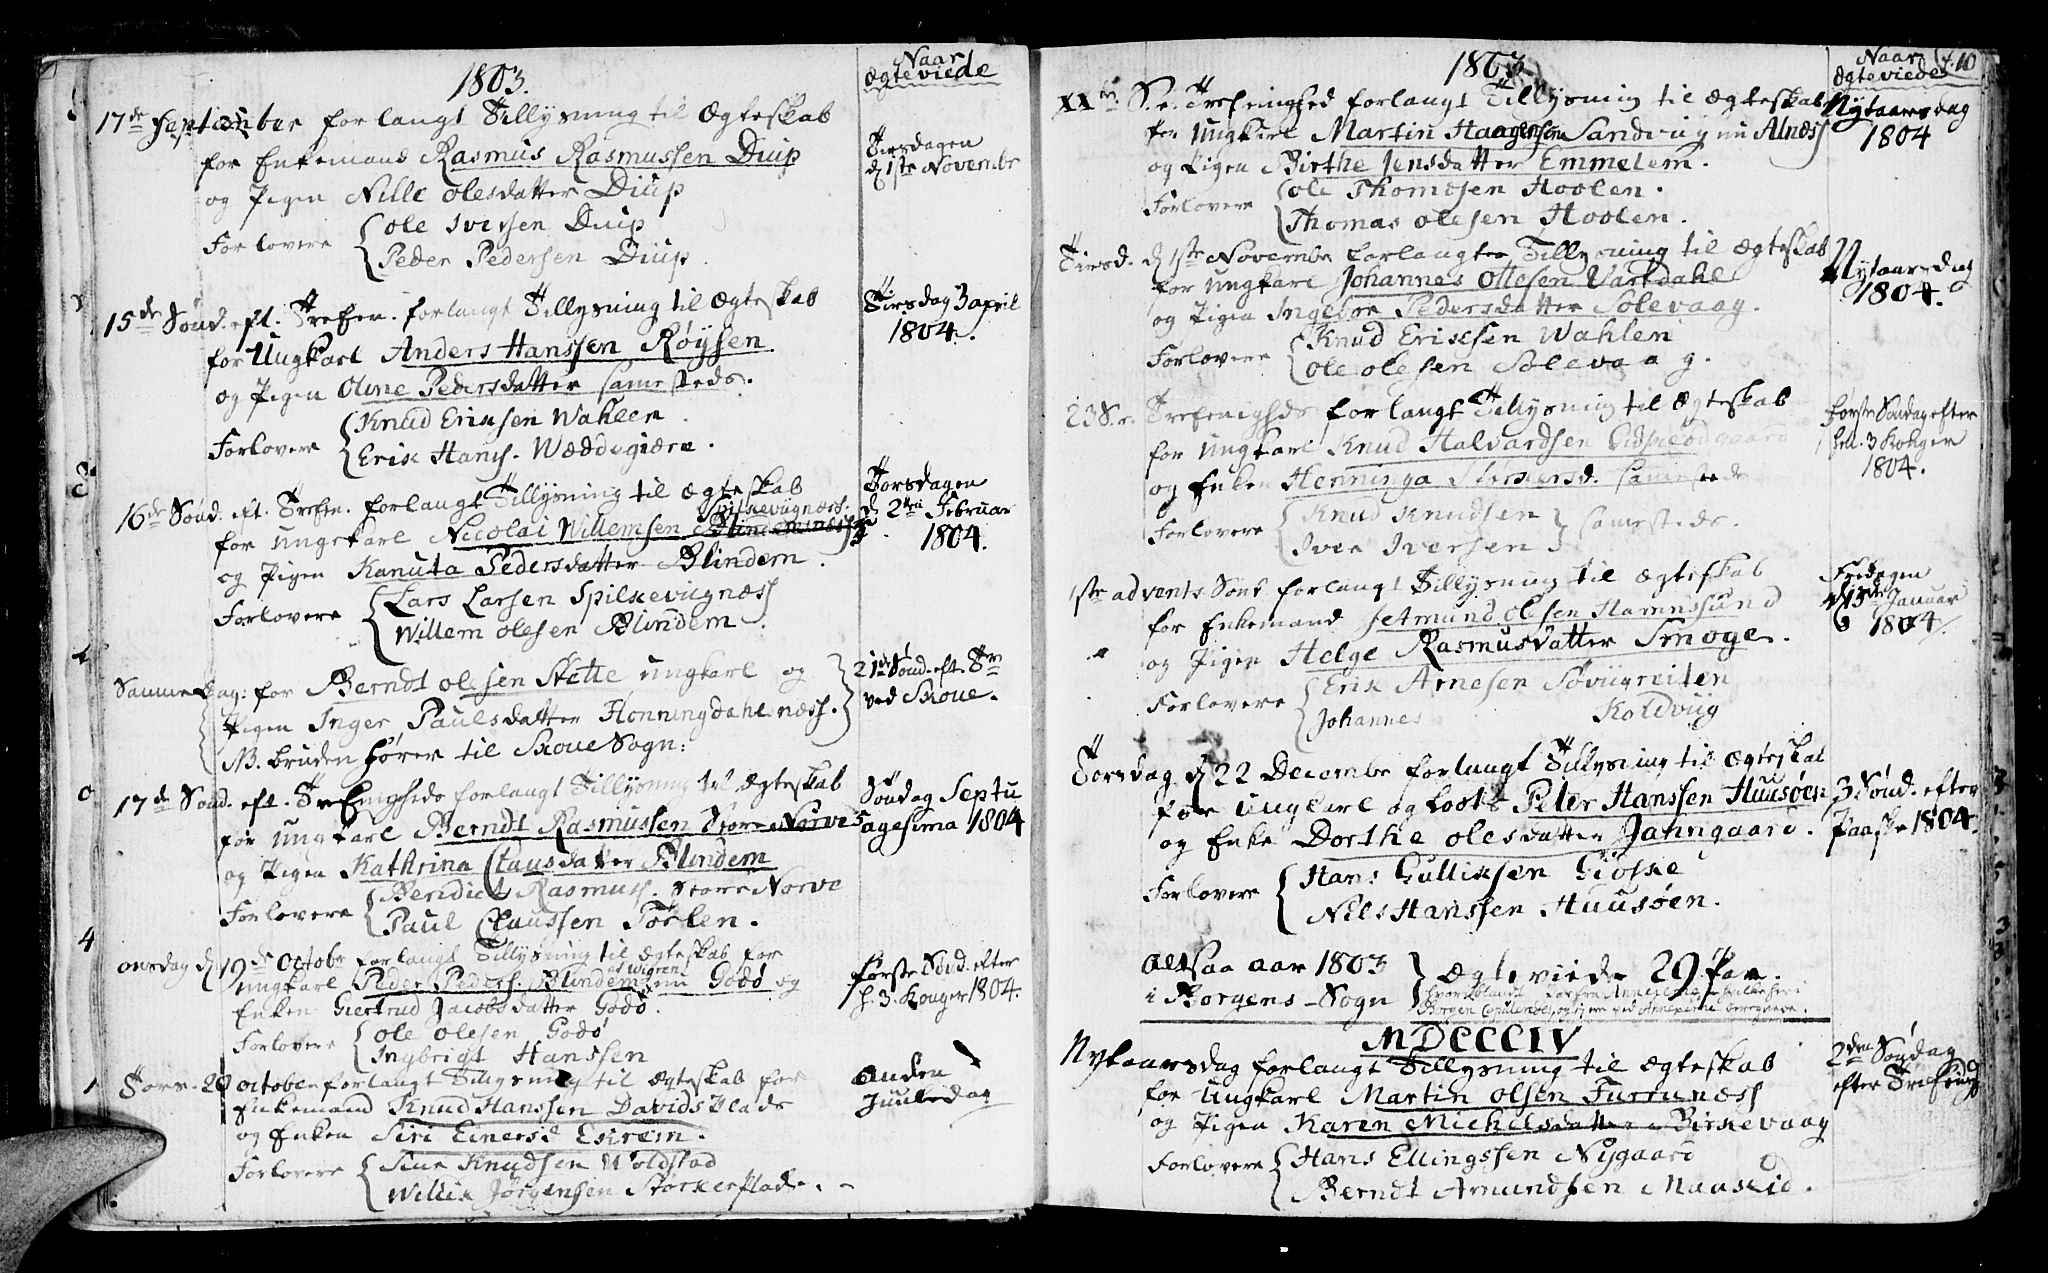 1803.
Naar
Ægteviede
17de September forlangt Tillysning til Ægteskab
for Enkemand Rasmus Rasmussen Diup
og Pigen Nille Olesdatter Diup
Forlovere Ole Iversen Diup
Peder Pedersen Diup.
Tirsdagen
d 1ste Novembr
15de Sønd. eft. Trefen. forlangt Tillysning til Ægteskab
for Ungkarl Anders Hanssen Røysen
og Pigen Oline Pedersdatter samesteds.
Forlovere Knud Eriksen Wahlen
Erik Hans. Wæddegiære.
Tirsdag 3 april
1804.
16de Sønd. eft. Trefen. forlangt Tillysning til Ægteskab
Spilkevugnæss.
for Ungekarl Nicolai Willemsen Blindemnæss
og Pigen Kanuta Pedersdatter Blindem.
Forlovere Lars Larsen Spilkevugnæss
Willem Olesen Blindem.
Torsdagen
d 2den Februar
1804.
Samme Dag: for Berndt Olesen Slette Ungkarl og
Pigen Inger Paulsdatter Honningdahlsnæss.
NB. bruden hører til Skoue Sogn:
21de Sønd. eft. Tr
ved Skoue.
17de Sønd. eft. Trefenigheds forlangt Tillysning til Ægteskab
for Ungkarl Berndt Rasmussen Store Norve
og Pigen Kathrina Clausdatter Blindem
Forlovere Bendict Rasmuss. Store Norve
Paul Claussen Torlen.
Søndag Septu
agesima 1804
onsdag d 19de Octobr forlangt Tillysning til Ægteskab for
Ungkarl Peder Peders. Blindem nu Godø og
Enken Giertrud Jacobsdatter Godø.
Forlovere Ole Olesen Godø
Ingbrigt Hanssen
første Sønd. efter
h. 3. Konger 1804.
Tors. 20 october forlangt Tillysning til Ægteskab for
Enkemand Knud Hanssen Davids Plads
og Enken Siri Einersd Eskrem.
Forlovere Siur Knudsen Woldstad
Willik Jørgensen Storkerplads.
Anden
Juuledag
1803
Naar
Ægteviede
10
XXde S. e. Trefenighed forlangt Tillysning til Ægteskab
for Ungkarl Martin Haagensen Sandvig nu Alnæss
og Pigen Birthe Jensdatter Emmelem.
Forlovere Ole Thomesen Hoolen.
Thomas Olesen Hoolen.
Nytaarsdag
1804
Tirsd. d 1ste Novembr forlangte Tillysning til Ægteskab
for Ungkarl Johannes Ottesen Vartdahl
og Pigen Ingebor Pedersdatter Solevaag.
Forlovere Knud Eriksen Wahlen
Ole Olesen Solevaag.
Nytaarsdag
1804.
23 S. e. Trefenigheds forlangt Tillysning til Ægteskab
for Ungkarl Knud Halvardsen Gidskeodgaard
og Enken Henninga Storkersd. samesteds
Forlovere Knud Knudsen
Iver Iversen samesteds.
første Søndag efter
hell. 3 Konger
1804.
1ste advents Sønd forlangt Tillysning til Ægteskab
for Enkemand Jetmund Olesen Hamnssund
og Pigen Helge Rasmusdatter Smoge.
Forlovere Erik Arnesen Søvigreiten
Johannes Koldvug
Fredagen
d 13de Januar
1804.
Torsdag d 22 Decembr forlangt Tillysning til Ægteskab
for Ungkarl og Loots Peter Hanssen Huusøen
og Enke Dorthe Olesdatter Jahngaard.
Forlovere Hans Gulliksen Giøske
Nils Hanssen Huusøen.
3 Sønd. efter
Paaske 1804.
Altsaa aar 1803
i Borgens-Sogn Ægteviede 29 Par.
MDCCCIV
Nytaarsdag forlangt Tillysning til Ægteskab
for Ungkarl Martin Olsen Furrunæss
og Pigen Karen Michelsdatter Birkevaag
Forlovere Hans Ellingssen Nygaard
Berndt Amundsen Maaseid.
2den Søndag
efter